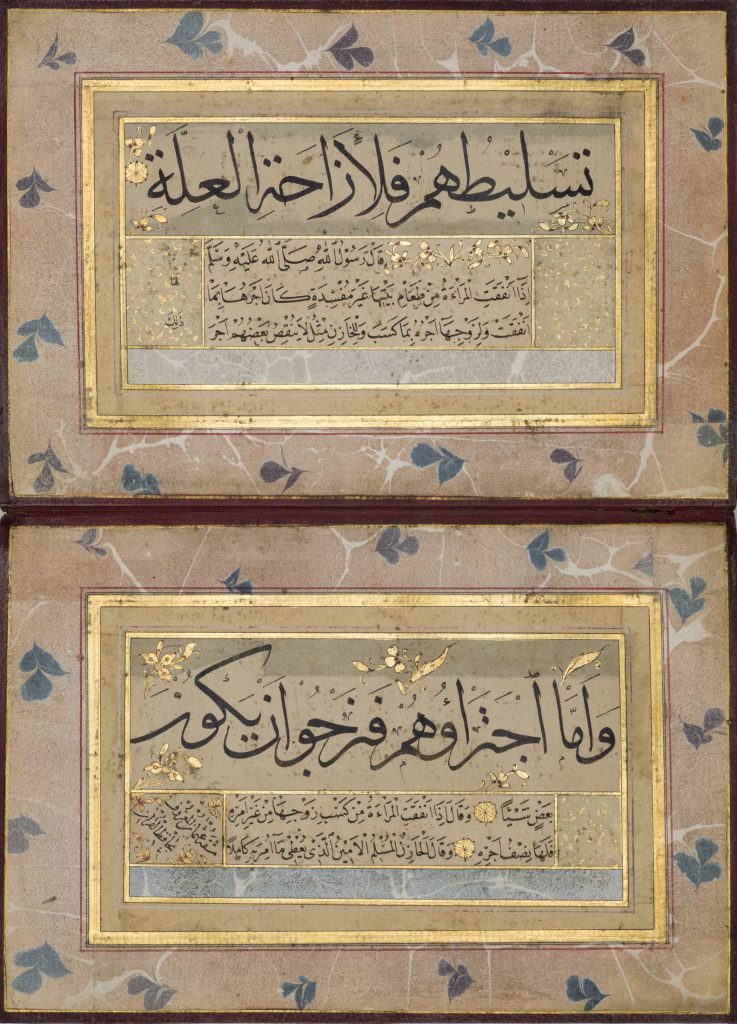 تَسْليطُهُمْ فَلِأَزَاحَةِ الْعِلَّةِ
قَالَ رَسُولُ اللهِ صَلَّى اللهُ عَلَيْهِ وَسَلَّمَ
اِذَا اَنْفَقَتِ الْمَرْاَةُ مِنْ طَعَامِ بَيْتِهَا غَيْرَ مُفْسِدَةٍ كَانَ اَجْرُهَا بِمَا
اَنْفَقَتْ وَلِزَوْجِهَا اَجْرُهُ بِمَا كَسَبَ وَلِلْخَازِنِ مِثْلُ لاَيَنْقُصُ بَعْضُهُمْ اَجْرَ
ذلك
وَاَمَّا اجْتَراؤُهُمْ فَنَرْجُوا اَنْ يَكُونَ
بَعْضٍ شَيْئًا وَقَالَ اِذَا اَنْفَقَتِ الْمَرْاَةُ مِنْ كَسْبِ زَوْجِهَا مِنْ غَيْرِ اَمْرِهِ
فَلَهَا نِصْفُ اَجْرِهِ وَقَالَ الْخَازِنُ الْمُسْلِمُ الاَمِينُ الَّذِي يُعْطِي مَا اُمِرَ بِهِ كَامِلاً
عثمان المعروف
بحافظ القرآن